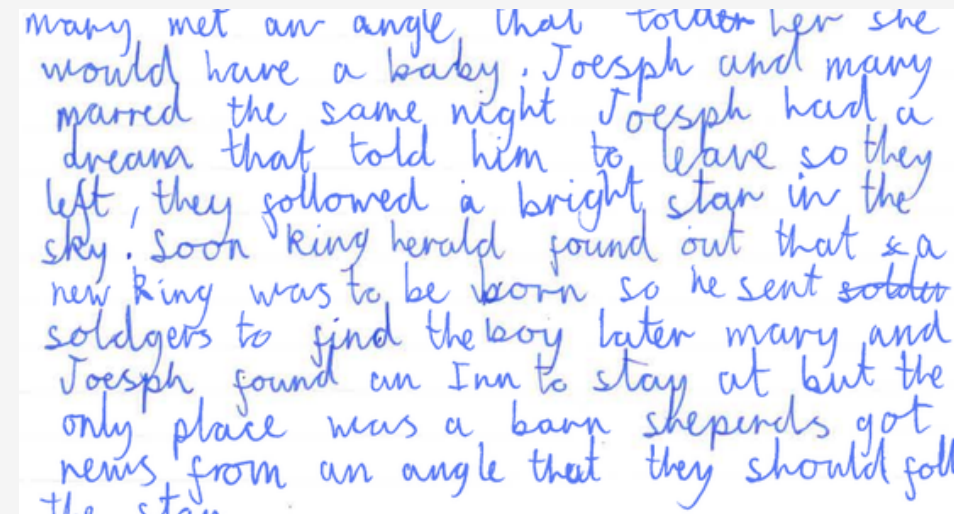 mary met an angle that told her she
would have a baby. Joesph and mary
marred the same night Joesph had a
dream that told him to leave so they
left, they followed a bright star in the
sky. Soon king herald found out that a
new king was to be born so he sent solder
soldgers to find the boy later mary and
Joesph found an Inn to stay at but the
only place was a barn sheperds got
news from an angle that they should foll
the star